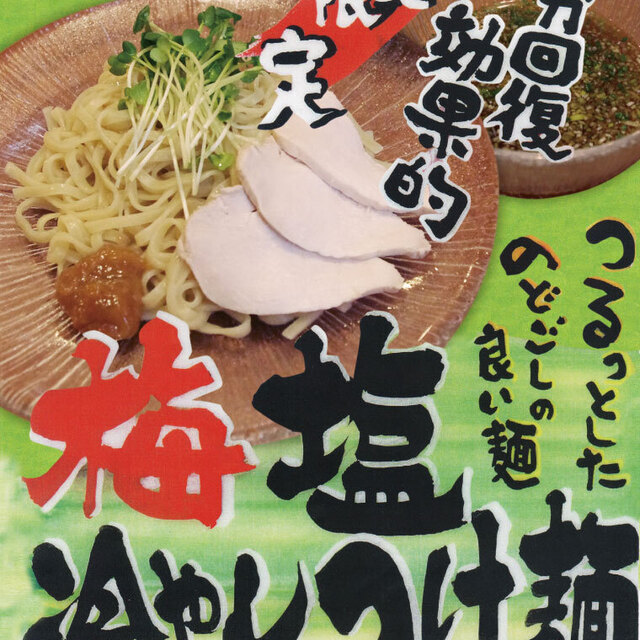 限定
分回復
効果的
つるっとした
のどごしの
良い麺
梅塩
冷やしつけ麺